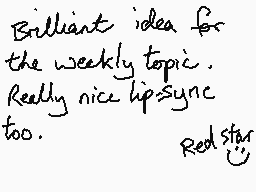 Brilliant idea for
the weekly topic.
Really nice lip-sync
too.
Red star